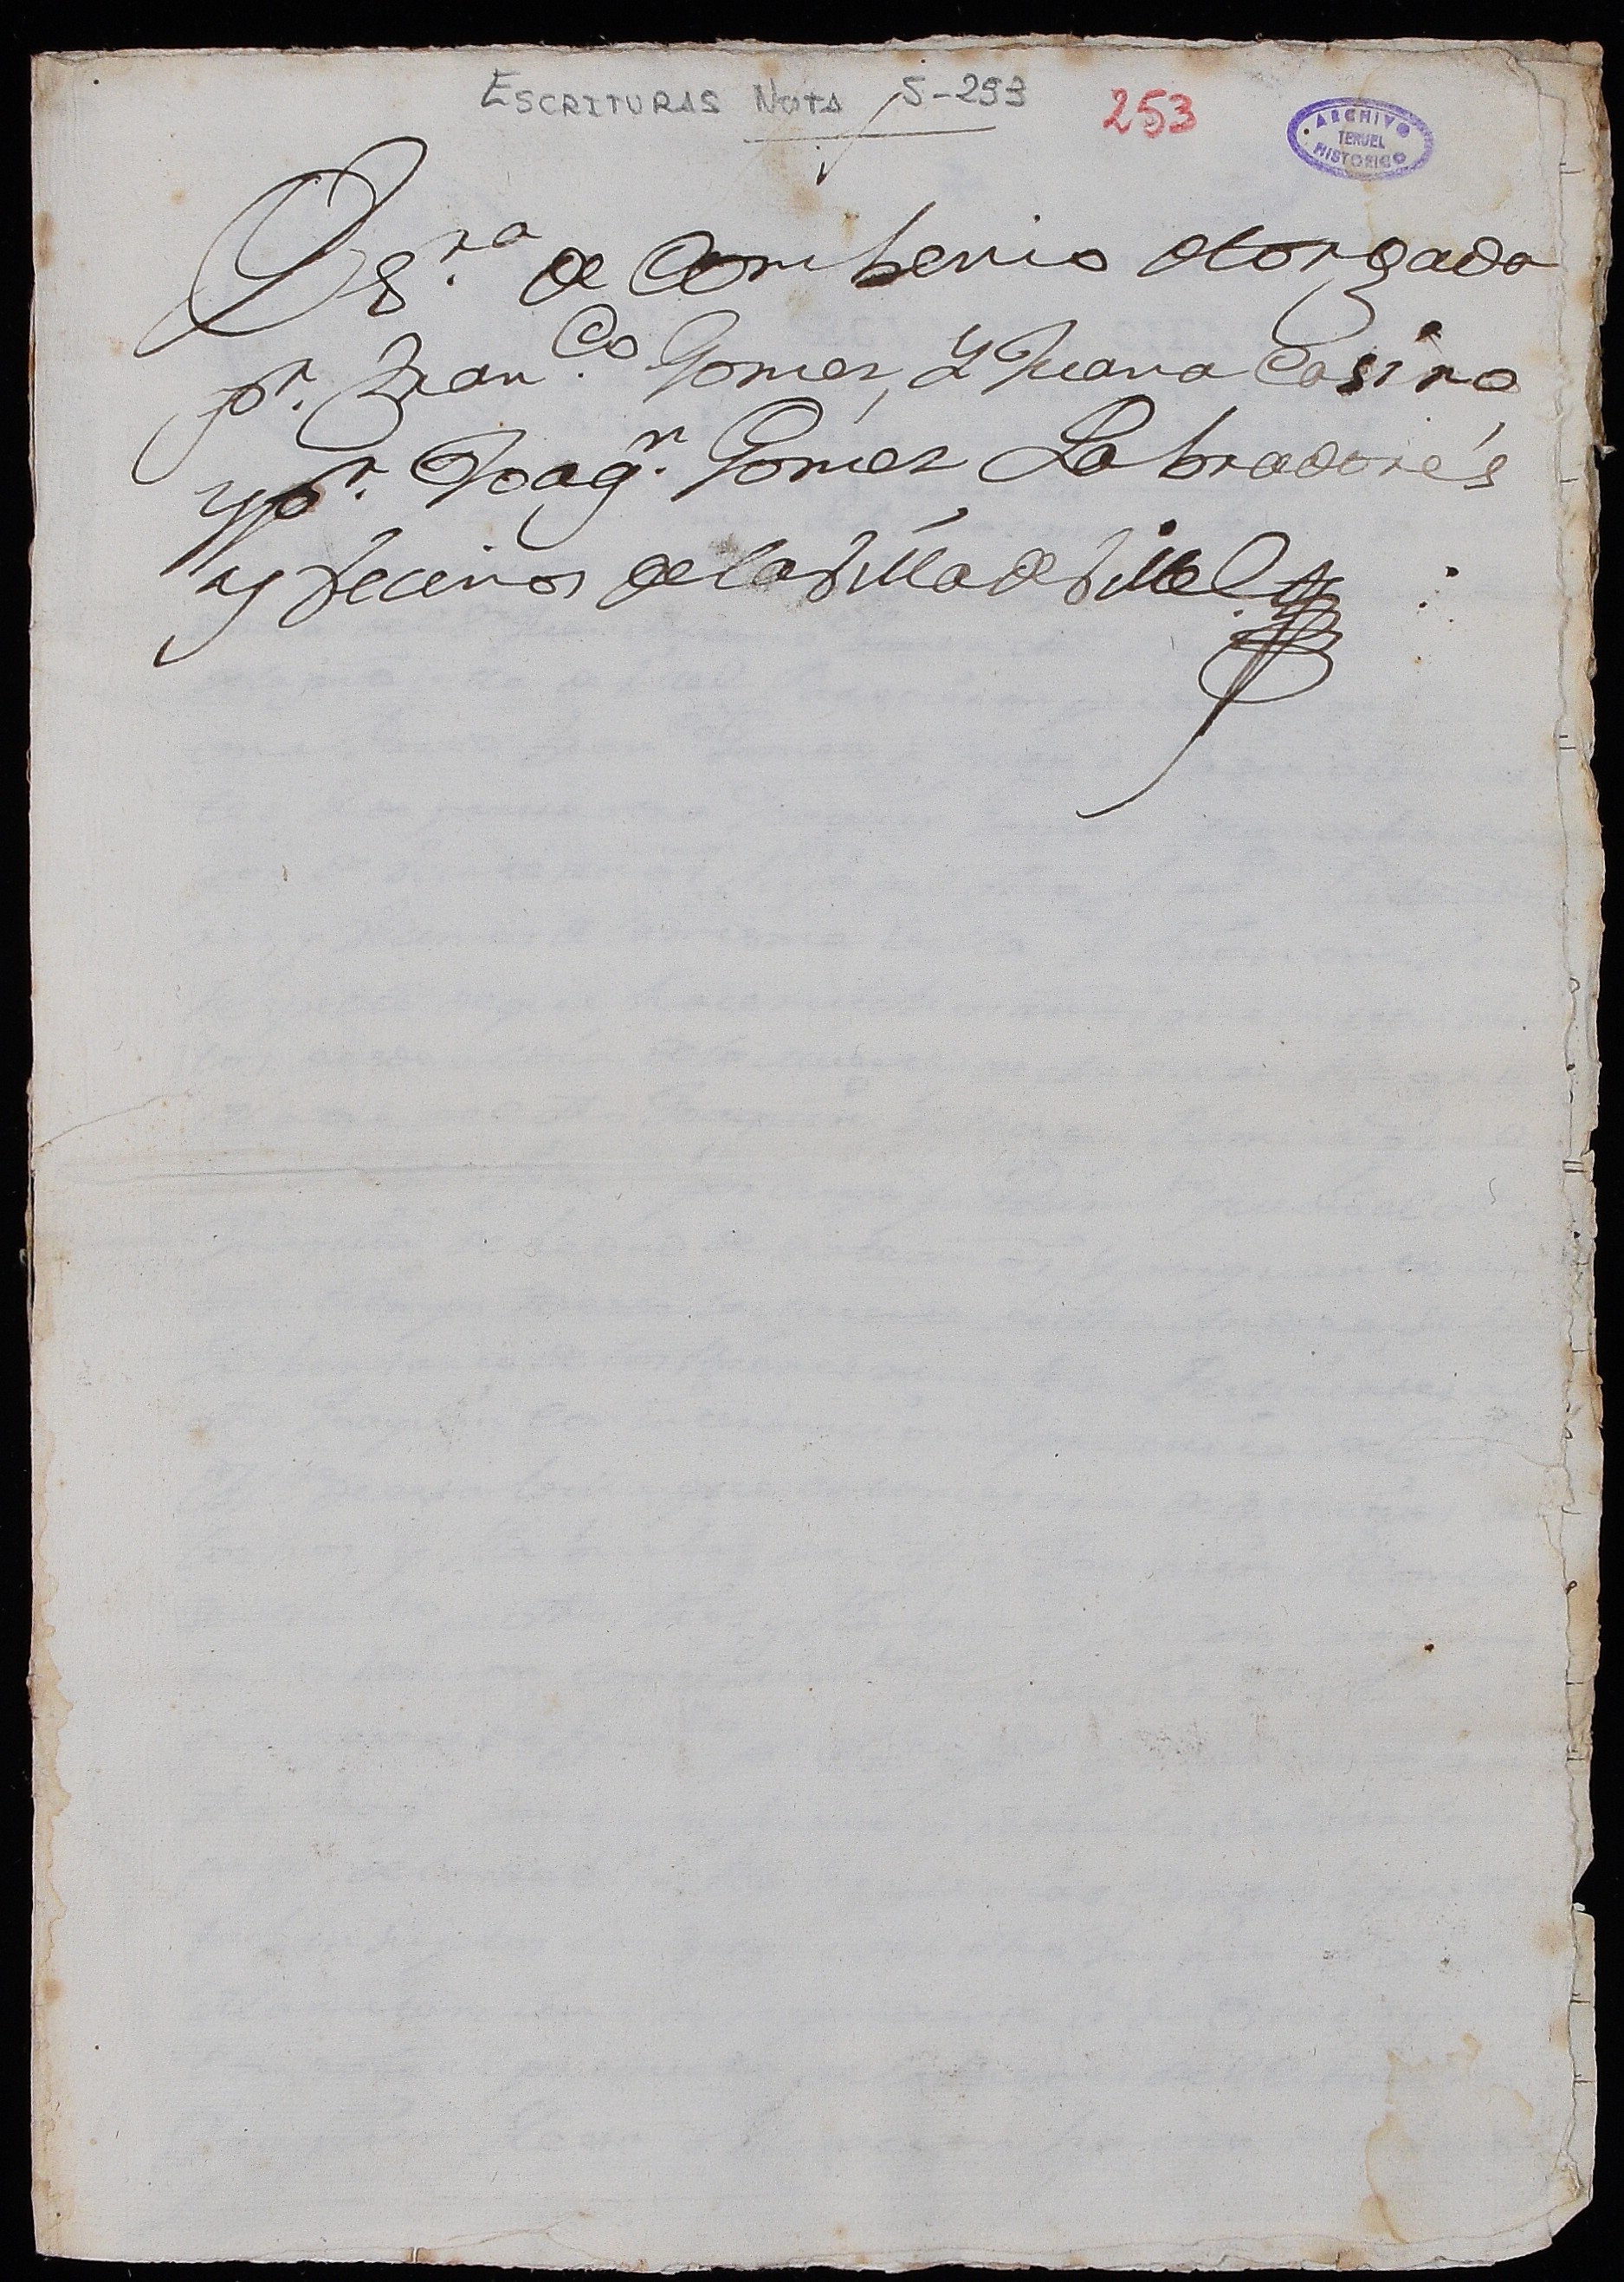 ESCRITURAS NOTA 5-293
253
ARCHIVO
TERUEL
HISTORICO
Es.ra de Combenio otorgada
pr. Fran.co Gomez, y Juana Casino,
y pr. Joaqn. Gomez Labradores
y Vecinos de la Villa de Villel